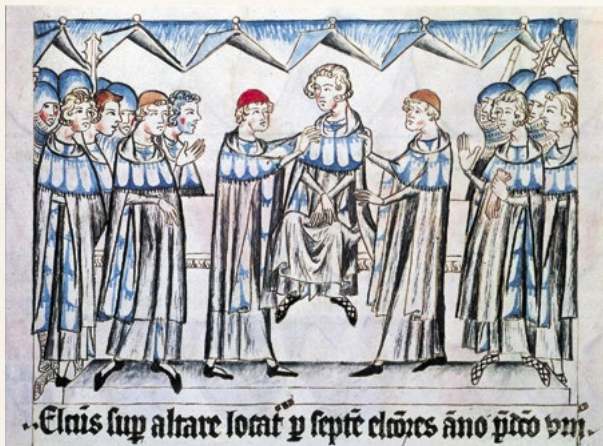 Elcūs sup altare locat' p septē elcōres āno p̄dc̄o vııı.